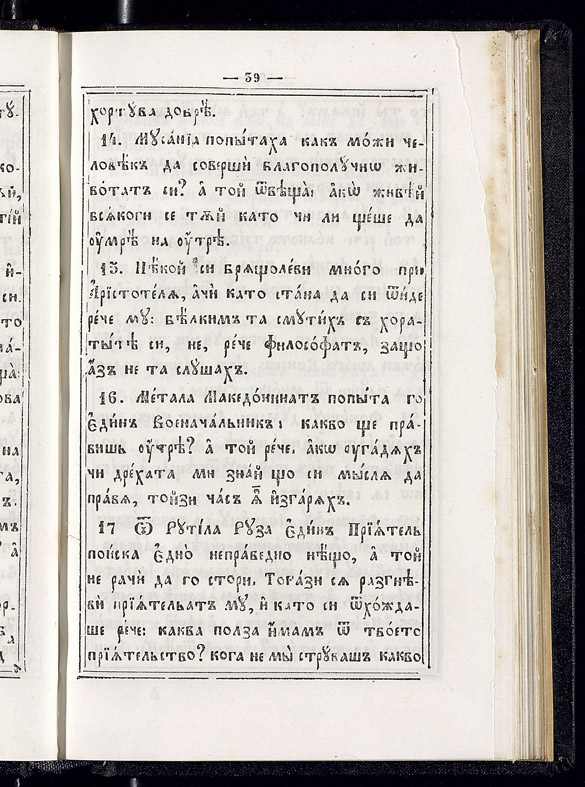 — 39 —
хортꙋва добрѣ̀.
14. Мꙋсані́а попы́таха какъ мо́жи че-
ловѣ́къ да соверши̑ благополꙋ́чнѡ жи-
во́татъ си? А҆ той ѿвѣща̀: а҆кѡ живѣ́й
всѧкоги се тѫ́й като чи ли ще́ше да
оу҆мрѣ̀ на оу҆́трѣ.
15. Нѣ́кой си брѧщоле́ви мно́го при
А҆рїстоте́лѧ, а҆чѝ като ста́на да си ѿи́де
ре́че мꙋ: бѣ́лкимъ та смꙋти́хъ съ хора-
ты́тѣ си, не, ре́че філосо́фатъ, защо
а҆́зъ не та слꙋ́шахъ.
16. Ме́тала Македо́нинатъ попы́та го
Е҆ди́нъ Военача́льникъ: какво ще пра́-
вишь оу҆́трѣ? а҆ той ре́че. а҆кѡ оу҆га́дѧхъ
чи дре́хата ми зна́й що си мы́слѧ да
пра́вѧ, тойзи ча́съ ѧ҆̀ и҆зга́рѧхъ.
17 Ѿ Рꙋті́ла Рꙋ́за Е҆ди́нъ Прїѧ́тель
пои́ска Е҆дно̀ непра́ведно нѣ́що, а҆ той
не рачѝ да го стори. Тога́зи сѧ разгнѣ-
вѝ прїѧ́тельатъ мꙋ̀, и҆ като си ѿхо́жда-
ше ре́че: каква полза и҆́мамъ ѿ твое́то
прїѧ́телство? кога не мѝ стрꙋвашъ какво